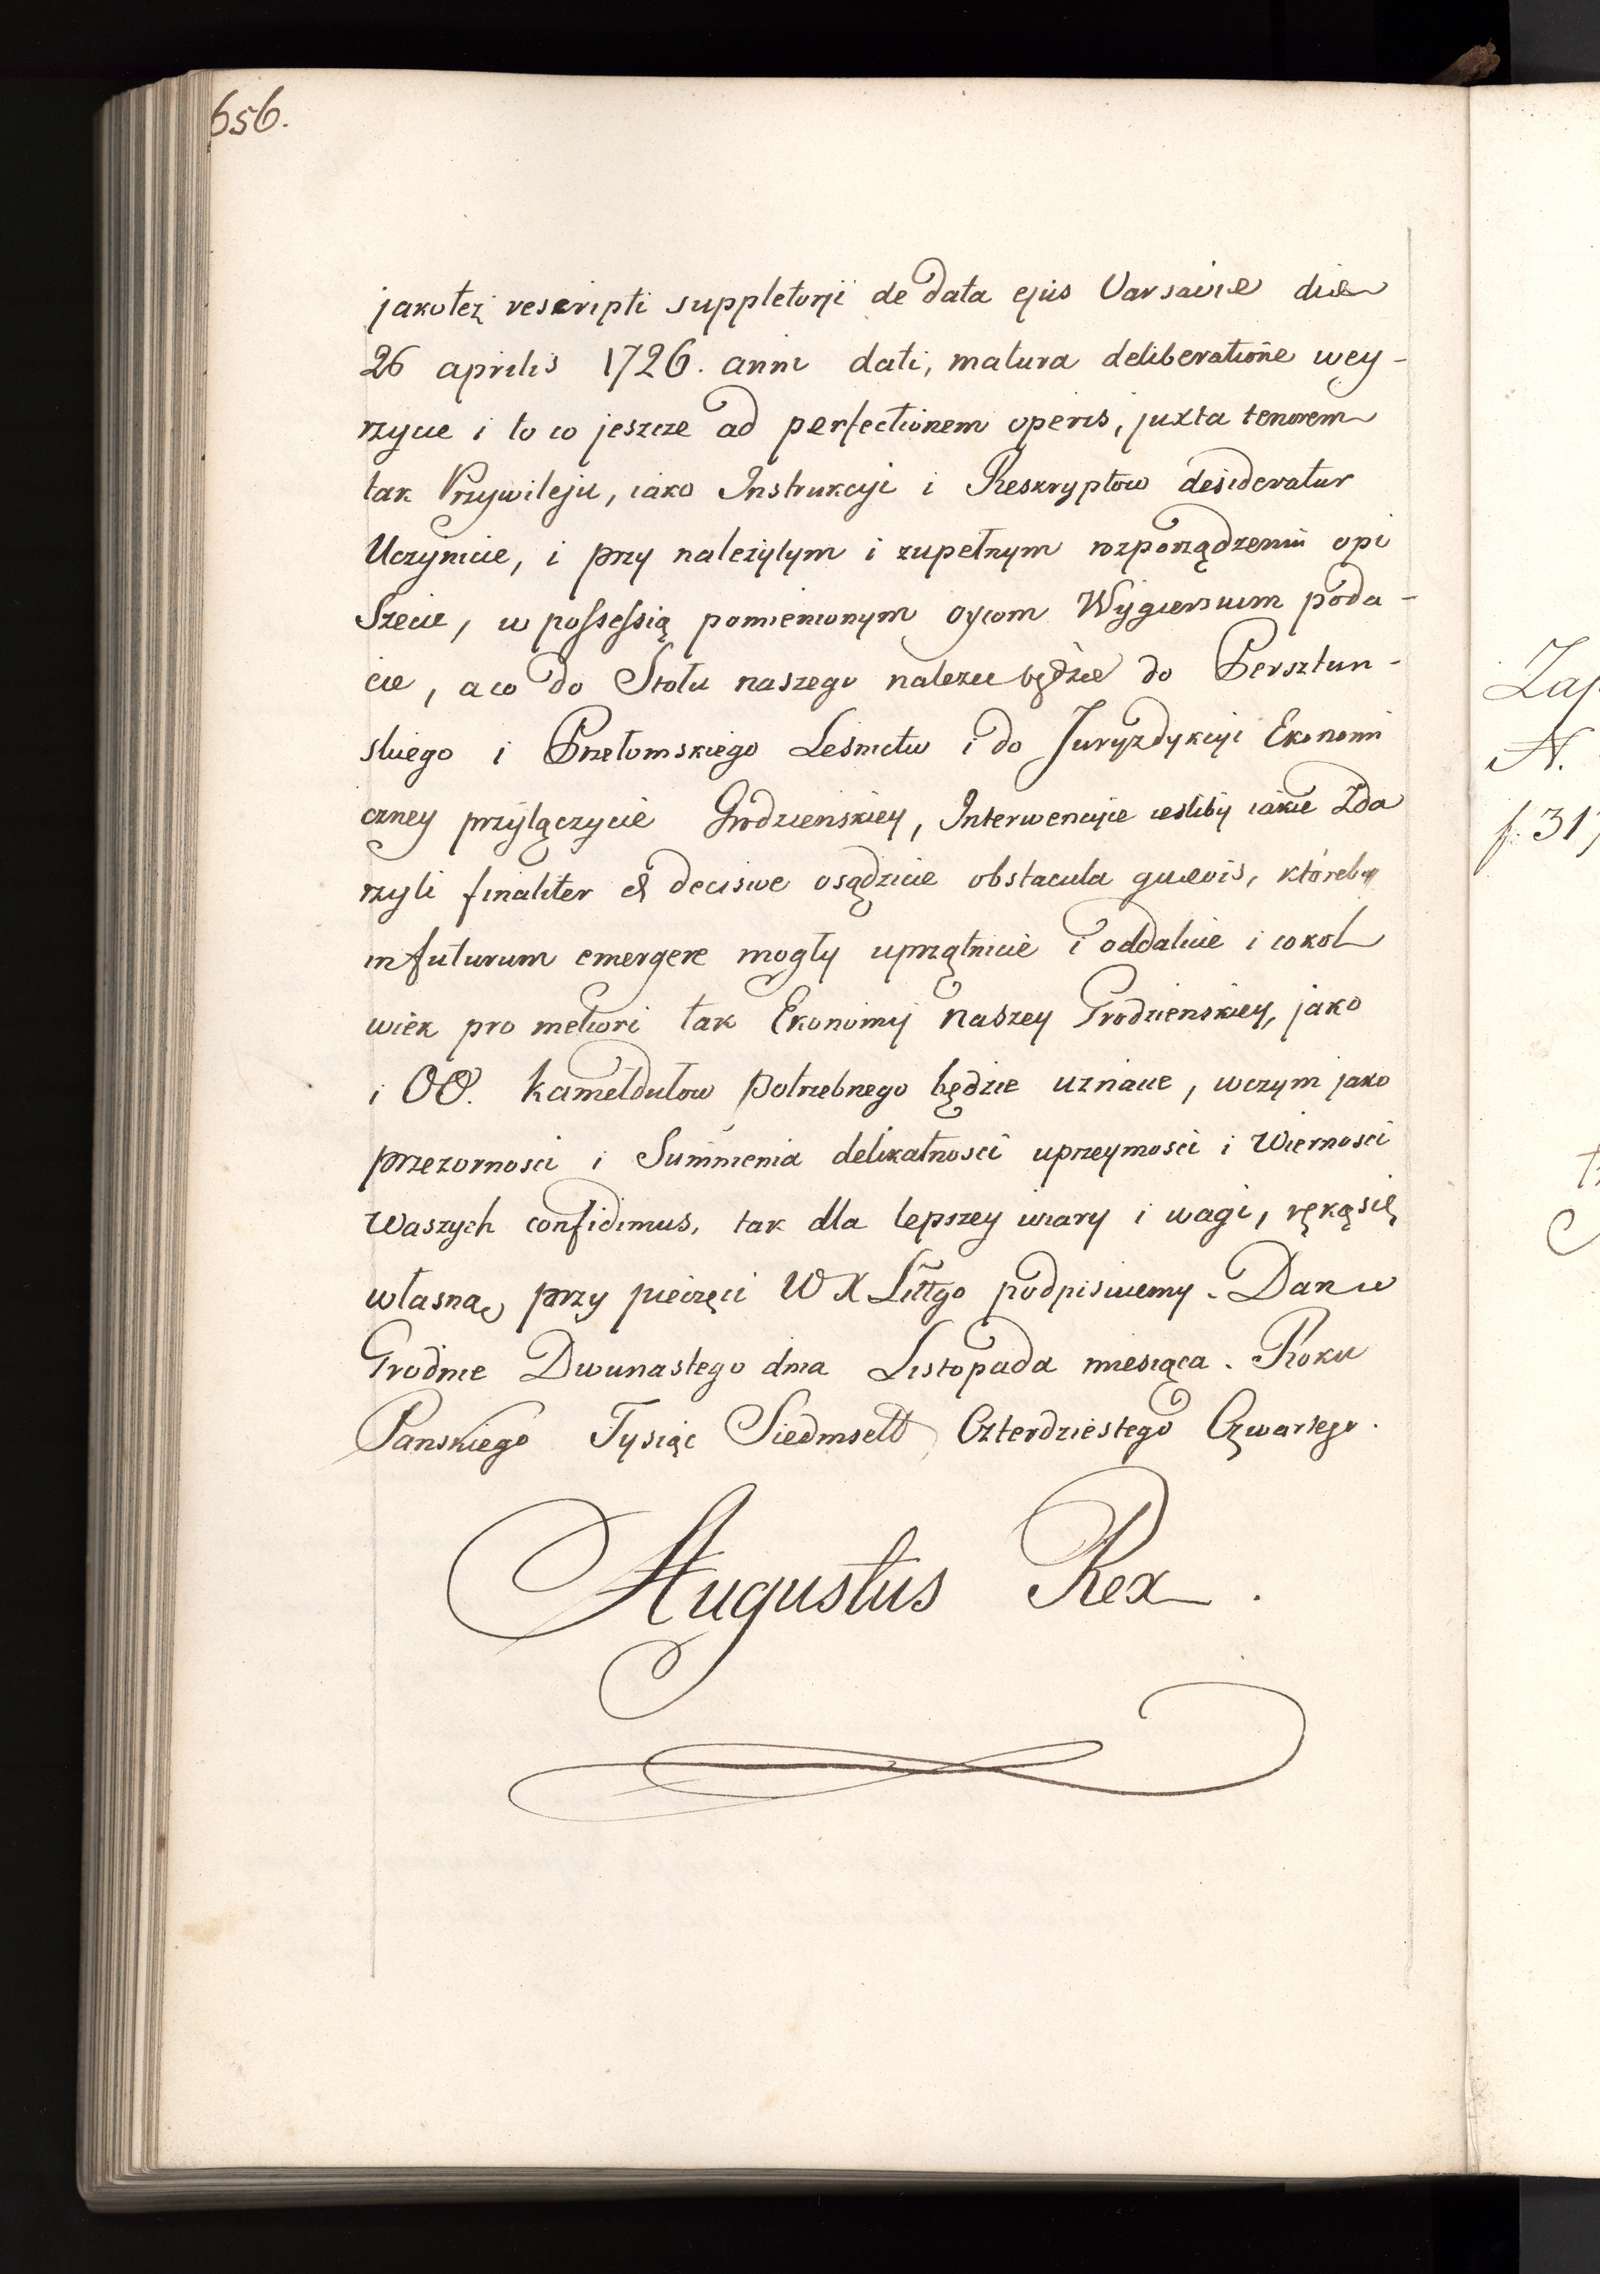 656.
jakoteż rescripti suppletorji de data ejus Varsaviæ die
26 aprilis 1726. anni dati, matura deliberatione wey-
rzycie i to co jeszcze ad perfectionem operis, juxta tenorem
tak Przywileju, iako Instrukcyi i Reskryptow desideratur
Uczynicie, i przy należytym i zupełnym rozporządzeniu opi
szecie, w possessią pomienionym oycom Wygierskim poda-
cie, a co do Stołu naszego należeć będzie do Persztun-
skiego i Przełomskiego Leśnictw i do Juryzdykcyi Ekonomi
czney przyłączycie Grodzieńskiey, Interwencyie ieśliby iakie zda
rzyli finaliter et decisive osądzicie obstacula quævis, któreby
in futurum emergere mogły uprzątnicie i oddalicie i cokol
wiek pro meliori tak Ekonomij naszey Grodzienskiey, jako
i OO. Kamedułow potrzebnego będzie uznacie, w czym jako
przezornosci i Summienia delikatności uprzeymości i Wiernosci
Waszych confidimus, tak dla lepszey wiary i wagi, ręką się
własną przy pieczęci W X Littgo podpisuiemy. Dan w
Grodnie Dwunastego dnia Listopada miesiąca. Roku
Panskiego Tysiąc Siedmsett Czterdziestego Czwartego.
Augustus Rex.
Zap
N.
f. 317